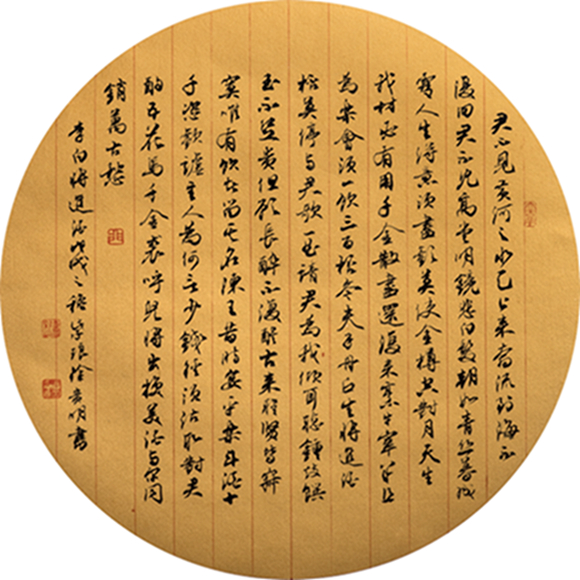 君不見黃河之水天上來奔流到海不
復回君不見高堂明鏡悲白髮朝如青絲暮成
雪人生得意須盡歡莫使金樽空對月天生
我材必有用千金散盡還復來烹羊宰牛且
為樂會須一飲三百杯岑夫子丹丘生將進酒
杯莫停與君歌一曲請君為我傾耳聽鐘鼓饌
玉不足貴但願長醉不復醒古來聖賢皆寂
寞唯有飲者留其名陳王昔時宴平樂斗酒十
千恣歡謔主人為何言少錢徑須沽取對君
酌五花馬千金裘呼兒將出換美酒與爾同
銷萬古愁
李白將進酒戊戌之 徐 明書